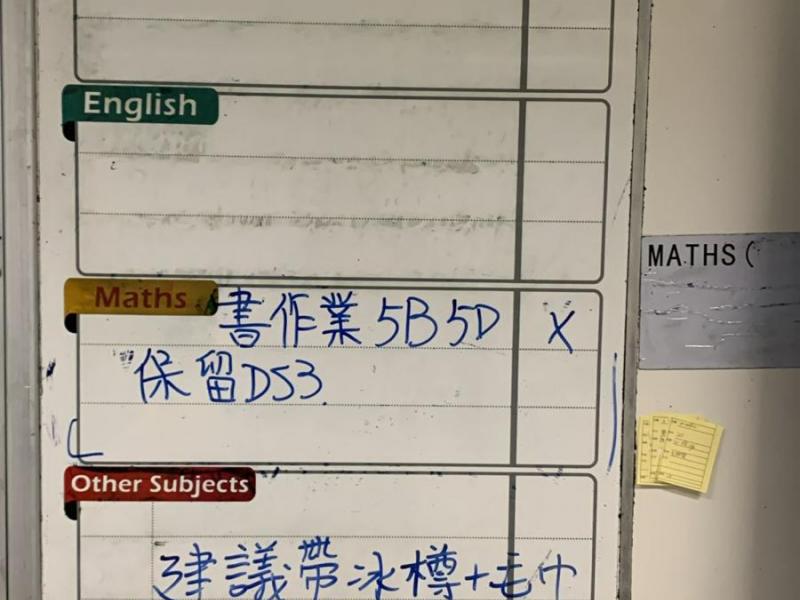 English
Maths
書作業 5B 5D X
保留DS3
MATHS (
Other Subjects
建議帶冰樽+毛巾